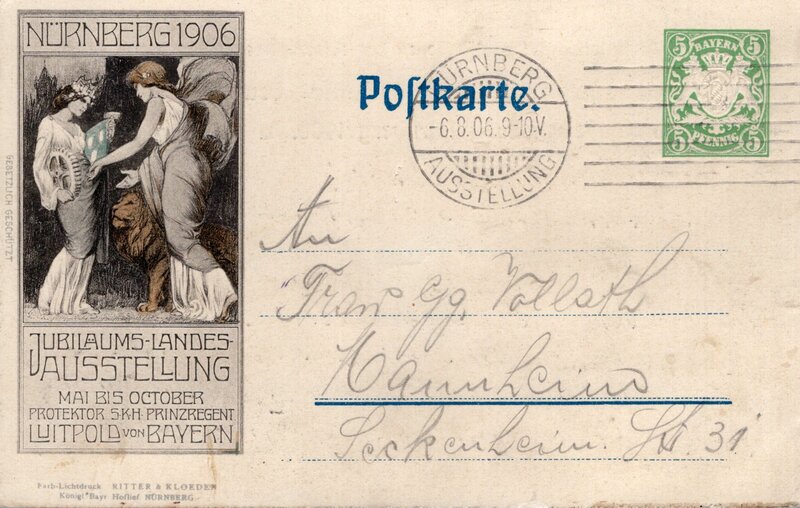 NÜRNBERG 1906
GESETZLICH GESCHÜTZT
JUBILÄUMS-LANDES-
AUSSTELLUNG
MAI BIS OCTOBER
PROTEKTOR S.K.H. PRINZREGENT
LUITPOLD VON BAYERN
Farb-Lichtdruck RITTER & KLOEDEN
Königl. Bayr Hoflief. NÜRNBERG
Poſtkarte.
NÜRNBERG
-6.8.06. 9-10V.
AUSSTELLUNG
5 BAYERN 5
5 PFENNIG 5
An
Frau Gg. Vollrath
Mannheim
Seckenheim. Str. 31